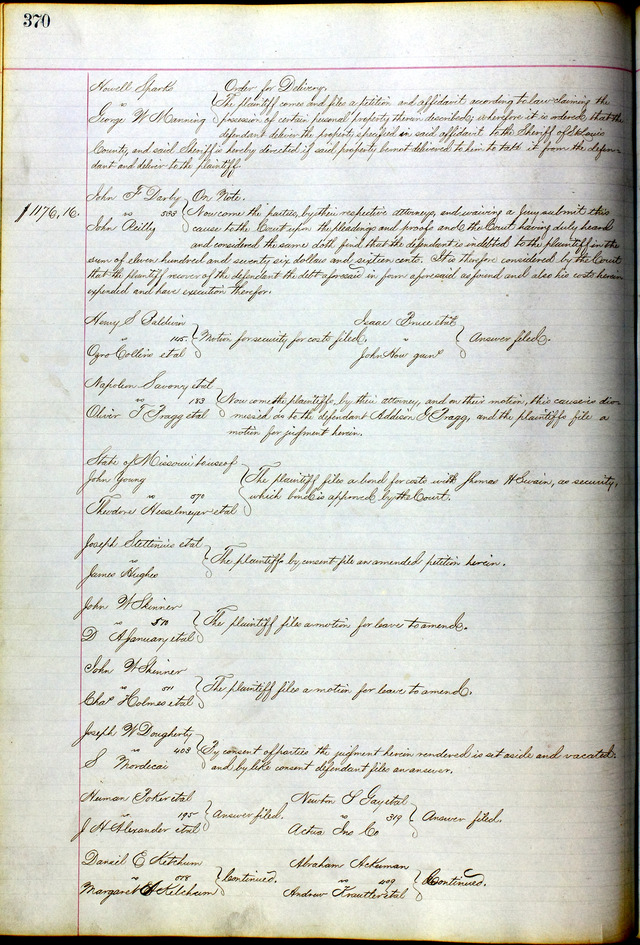 370
Howell Sparks Order for Delivery.
vs The plaintiff comes and files a petition and affidavit according to law claiming the
George W Manning possession of certain personal property therein described; wherefore it is ordered that the
defendant deliver the property specified in said affidavit to the Sheriff of St Louis
County, and said Sheriff is hereby directed if said property be not delivered to him to take it from the defen-
dant and deliver to the plaintiff
John F Darby On Note.
$1176,16. vs 533 Now come the parties, by their respective attorneys, and waiving a Jury submit this
John Reilly cause to the Court upon the pleadings and proofs and the Court having duly heard
and considered the same doth find that the defendant is indebted to the plaintiff in the
sum of eleven hundred and seventy six dollars and sixteen cents. It is therefore considered by the Court
that the plaintiff recover of the defendant the debt aforesaid in form aforesaid as found and also his costs herein
expended and have execution therefor.
Henry S Baldwin Isaac Bruce etal
vs 145. Motion for security for costs filed. vs Answer filed.
Ogro Collins etal John How garne
Napoleon Savony etal
vs 183 Now come the plaintiffs, by their attorney, and on their motion, this cause is dis-
Oliver T Bragg etal missed as to the defendant Addison G Bragg, and the plaintiffs file a
motion for judgment herein.
State of Missouri to use of
John Young The plaintiff files a bond for costs with Thomas H Swain, as security,
vs 070 which bond is approved by the Court.
Theodore Hesselmeyer etal
Joseph Stettinius etal
vs The plaintiffs by consent file an amended petition herein.
James Hughes
John W Skinner
vs 510 The plaintiff files a motion for leave to amend.
D A January etal
John W Skinner
vs 511 The plaintiff files a motion for leave to amend.
Chas Holmes etal
Joseph W Dougherty
vs 403 By consent of parties the judgment herein rendered is set aside and vacated
S Mordecai and by like consent defendant files an answer.
Herman Poker etal Newton S Gay etal
vs 195 Answer filed. vs 319 Answer filed.
J H Alexander etal Actua Ins Co
Daneil E Ketchum Abraham Ackerman
vs 078 Continued. vs 409 Continued.
Margaret A Ketchum Andrew Krautter etal